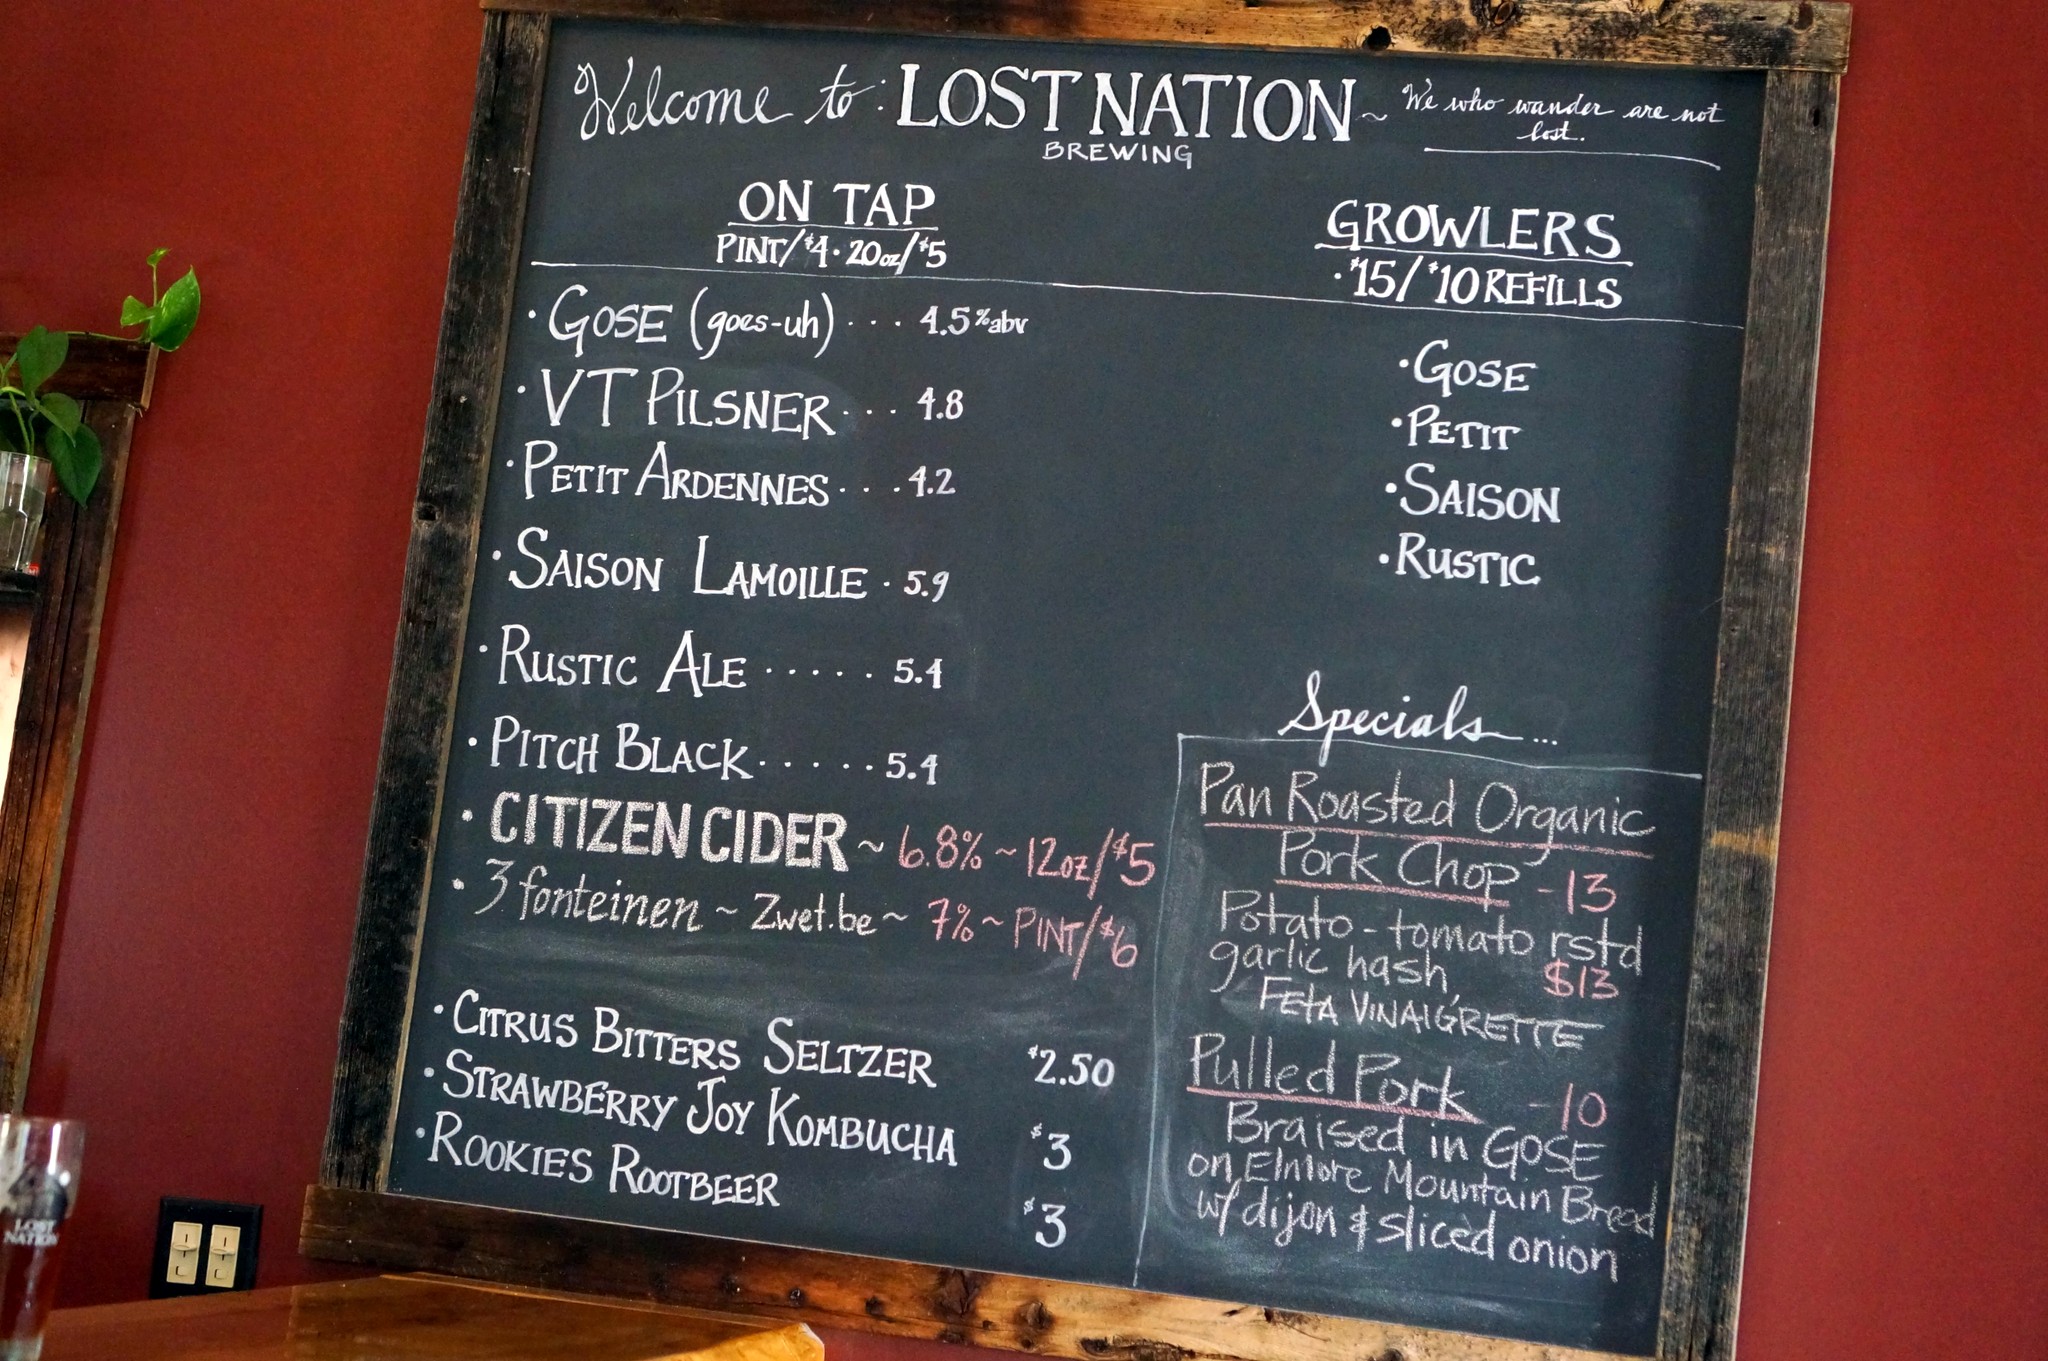 Welcome to: LOST NATION ~ We who wander are not
lost.
BREWING
ON TAP
PINT/$4 · 20oz/$5
· GOSE (goes-uh) . . . 4.5%abv
· VT PILSNER . . . 4.8
· PETIT ARDENNES . . . 4.2
· SAISON LAMOILLE . 5.9
· RUSTIC ALE . . . . . 5.4
· PITCH BLACK . . . . . 5.4
· CITIZEN CIDER ~ 6.8% ~ 12oz/$5
· 3 fonteinen ~ Zwet.be ~ 7% ~ PINT/$6
· CITRUS BITTERS SELTZER $2.50
· STRAWBERRY JOY KOMBUCHA $3
· ROOKIES ROOTBEER $3
GROWLERS
· $15/$10 REFILLS
· GOSE
· PETIT
· SAISON
· RUSTIC
Specials...
Pan Roasted Organic
Pork Chop -13
Potato-tomato rstd
garlic hash, $13
FETA VINAIGRETTE
Pulled Pork -10
Braised in GOSE
on Elmore Mountain Bread
w/ dijon & sliced onion
LOST
NATION